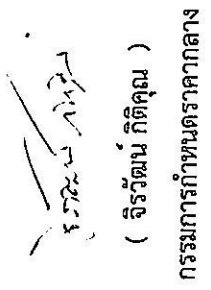 ( จิรวัฒน์ กิติคุณ )
กรรมการกำหนดราคากลาง